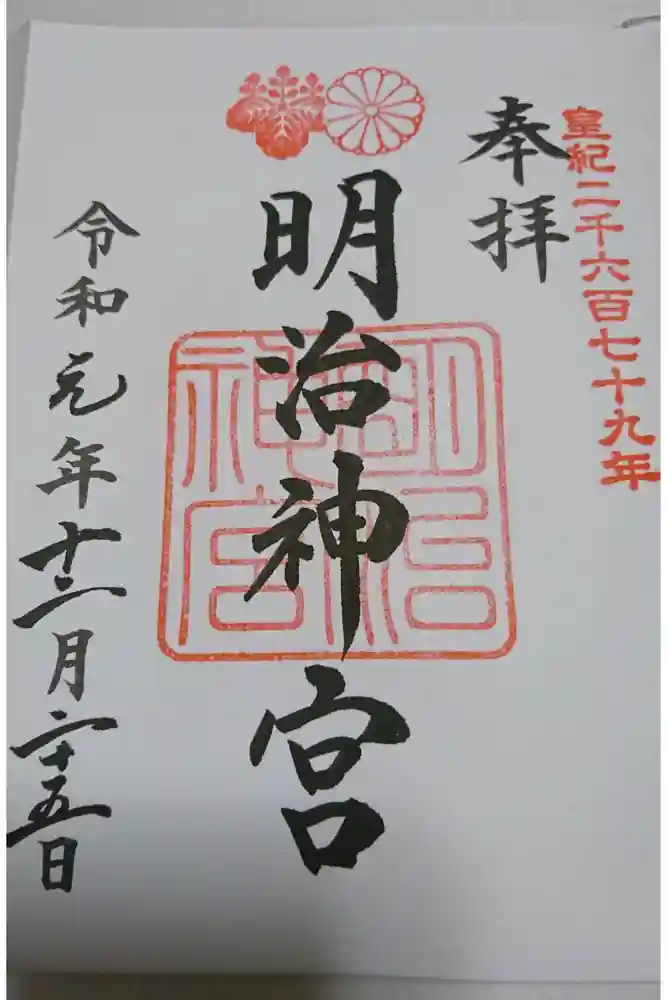 皇紀二千六百七十九年
奉拝
明治神宮
明治神宮
令和元年十二月二十五日